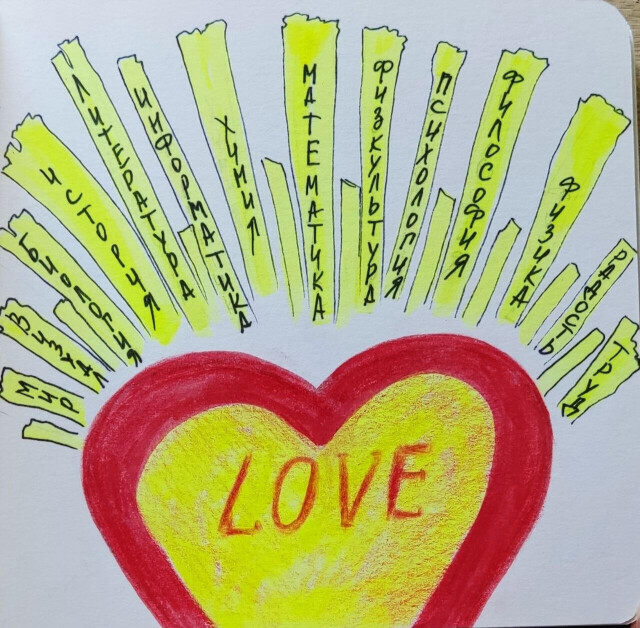 МИР
БИОЛОГИЯ
ИСТОРИЯ
ЛИТЕРАТУРА
ИНФОРМАТИКА
ХИМИЯ
МАТЕМАТИКА
ФИЗКУЛЬТУРА
ПСИХОЛОГИЯ
ФИЛОСОФИЯ
ФИЗИКА
РАДОСТЬ
ТРУД
LOVE